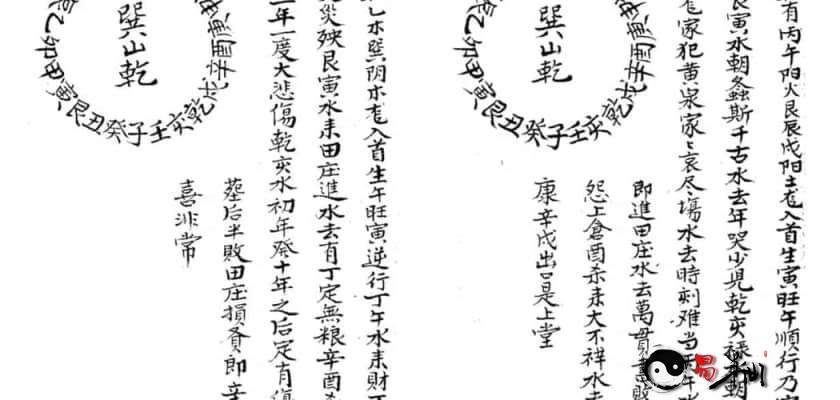 有丙午阳火艮辰戌阳土竜入首生寅旺午順行乃
艮寅水朝螽斯千古水去年哭少児乾亥禄朝
竜家犯黄泉家〻哀尽〻塲水去時刻难当丙午水
即進田庄水去萬貫
怨上倉酉杀来大不祥水去
康辛戌出口是上堂
巽山乾
庚酉辛戌乾亥壬子癸丑艮寅甲卯乙
乙木巽阴木竜入首生午旺寅逆行丁午水来財
災殃艮寅水来田庄進水去有丁定無粮辛酉
年一度大悲傷乾亥水初年発十年之后定有傷
塟后半敗田庄損賫即辛
喜非常
巽山乾
庚酉辛戌乾亥壬子癸丑艮寅甲卯乙
易